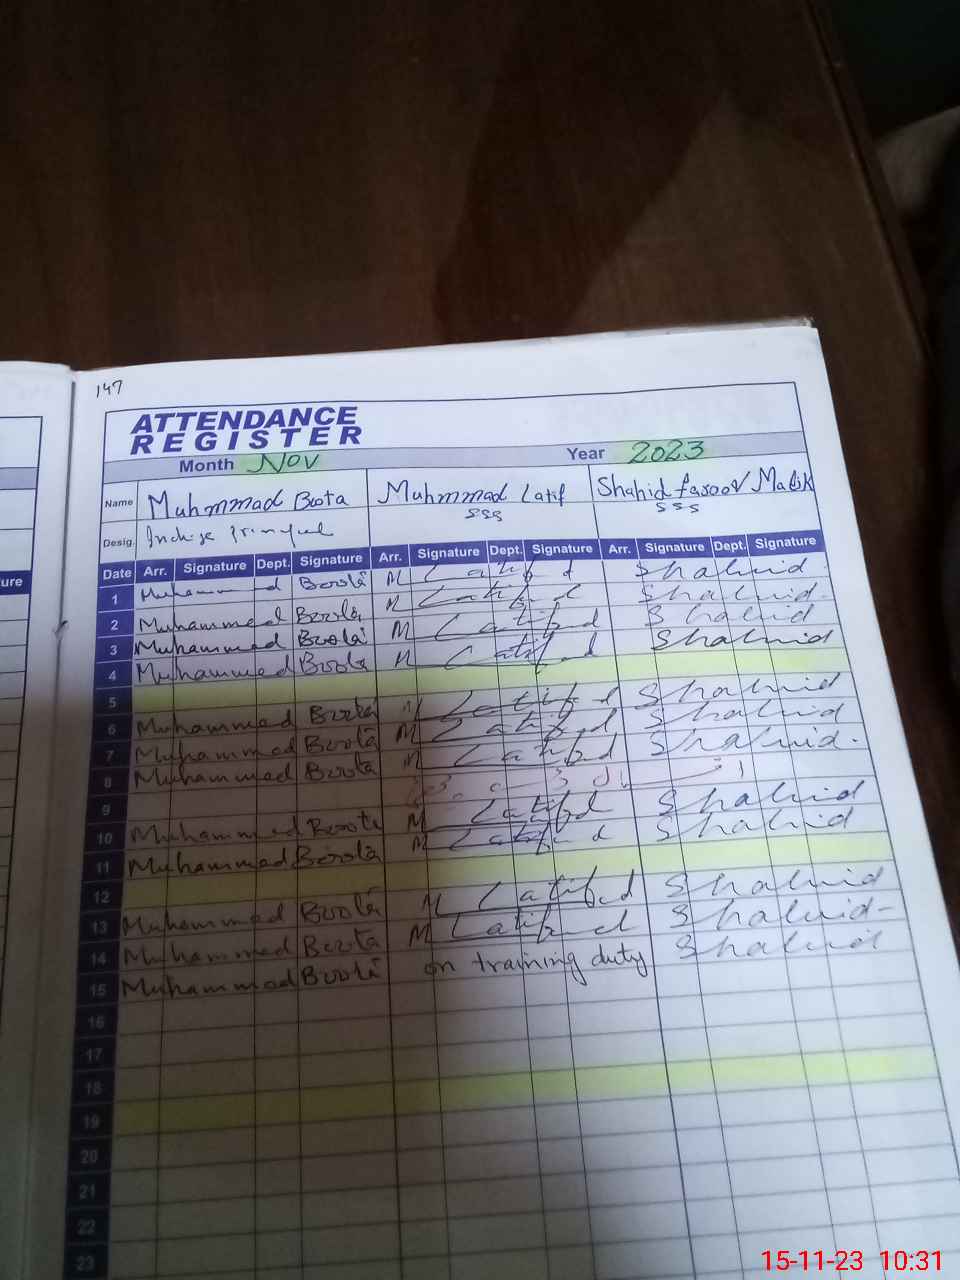 147
ATTENDANCE
REGISTER
Month Nov Year 2023
Name Muhmmad Boota Muhmmad Latif Shahid farooq Malik
Desig. SSS SSS
Date Arr. Signature Dept. Signature Arr. Signature Dept. Signature Arr. Signature Dept. Signature
1 Muhammad Boota M Latif Shahid
2 Muhammad Boota M Latif Shahid
3 Muhammad Boota M Latif Shahid
4 Muhammad Boota M Latif Shahid
5
6 Muhammad Boota M Latif Shahid
7 Muhammad Boota M Latif Shahid
8 Muhammad Boota M Latif Shahid
9
10 Muhammad Boota M Latif Shahid
11 Muhammad Boota M Latif Shahid
12
13 Muhammad Boota M Latif Shahid
14 Muhammad Boota M Latif Shahid
15 Muhammad Boota on training duty Shahid
16
17
18
19
20
21
22
23
ure
15-11-23 10:31